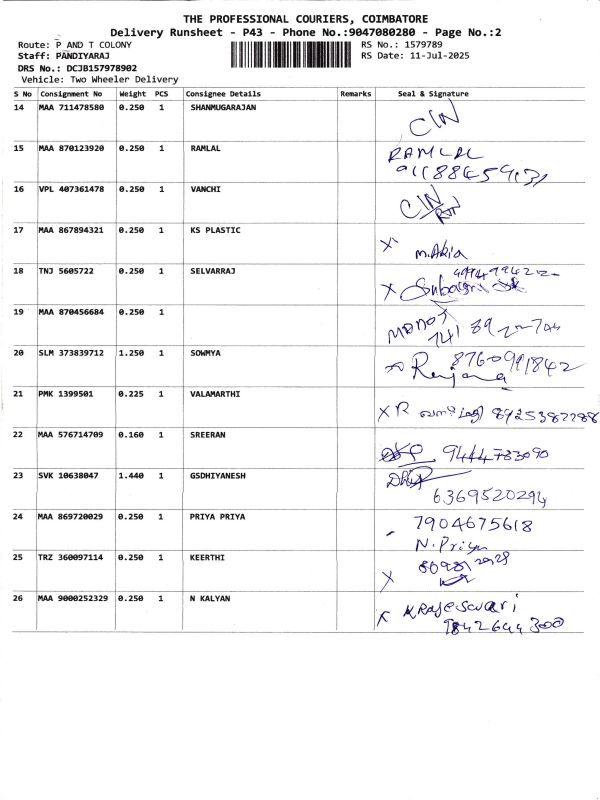 THE PROFESSIONAL COURIERS, COIMBATORE
Delivery Runsheet - P43 - Phone No.:9047080280 - Page No.:2
Route: P AND T COLONY RS No.: 1579789
Staff: PANDIYARAJ RS Date: 11-Jul-2025
DRS No.: DCJB157978902
Vehicle: Two Wheeler Delivery
S No Consignment No Weight PCS Consignee Details Remarks Seal & Signature
14 MAA 711478580 0.250 1 SHANMUGARAJAN
CIN
15 MAA 870123920 0.250 1 RAMLAL
RAMLAL
16 VPL 407361478 0.250 1 VANCHI
CIN
17 MAA 867894321 0.250 1 KS PLASTIC
X
18 TNJ 5605722 0.250 1 SELVARRAJ
X
19 MAA 870456684 0.250 1
20 SLM 373839712 1.250 1 SOWMYA
8760991842
Renjana
21 PMK 1399501 0.225 1 VALAMARTHI
X R 8925382288
22 MAA 576714709 0.160 1 SREERAN
9444783090
23 SVK 10638047 1.440 1 GSDHIYANESH
6369520294
24 MAA 869720029 0.250 1 PRIYA PRIYA
7904675618
N. Priya
25 TRZ 360097114 0.250 1 KEERTHI
X
26 MAA 9000252329 0.250 1 N KALYAN
X K Rajeswari
9842644300